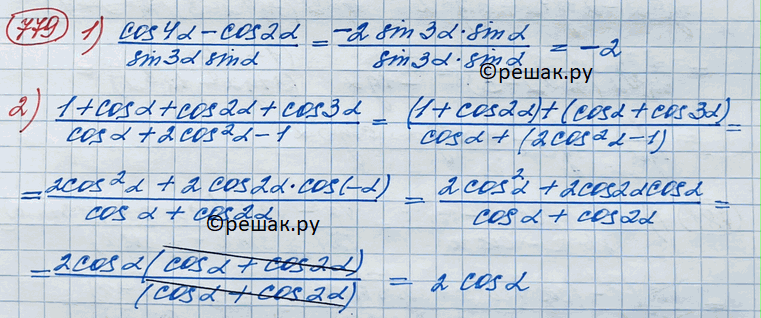 779 1) (cos4α − cos2α)/(sin3α sinα) = (−2 sin3α·sinα)/(sin3α·sinα) = −2
©решак.ру
2) (1+cosα+cos2α+cos3α)/(cosα+2cos²α−1) = ((1+cos2α)+(cosα+cos3α))/(cosα+(2cos²α−1)) =
= (2cos²α + 2cos2α·cos(−α))/(cosα+cos2α) = (2cos²α+2cos2αcosα)/(cosα+cos2α) =
©решак.ру
= (2cosα(cosα+cos2α))/((cosα+cos2α)) = 2cosα